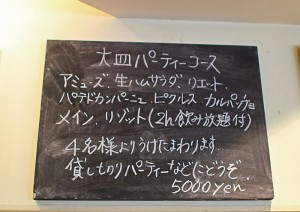 大皿パーティーコース
アミューズ、生ハムサラダ、リエット、
パテドカンパーニュ ピクルス カルパッチョ
メイン、リゾット(2h飲み放題付)
4名様よりうけたまわります。
貸し切りパーティーなどにどうぞ。
5000yen